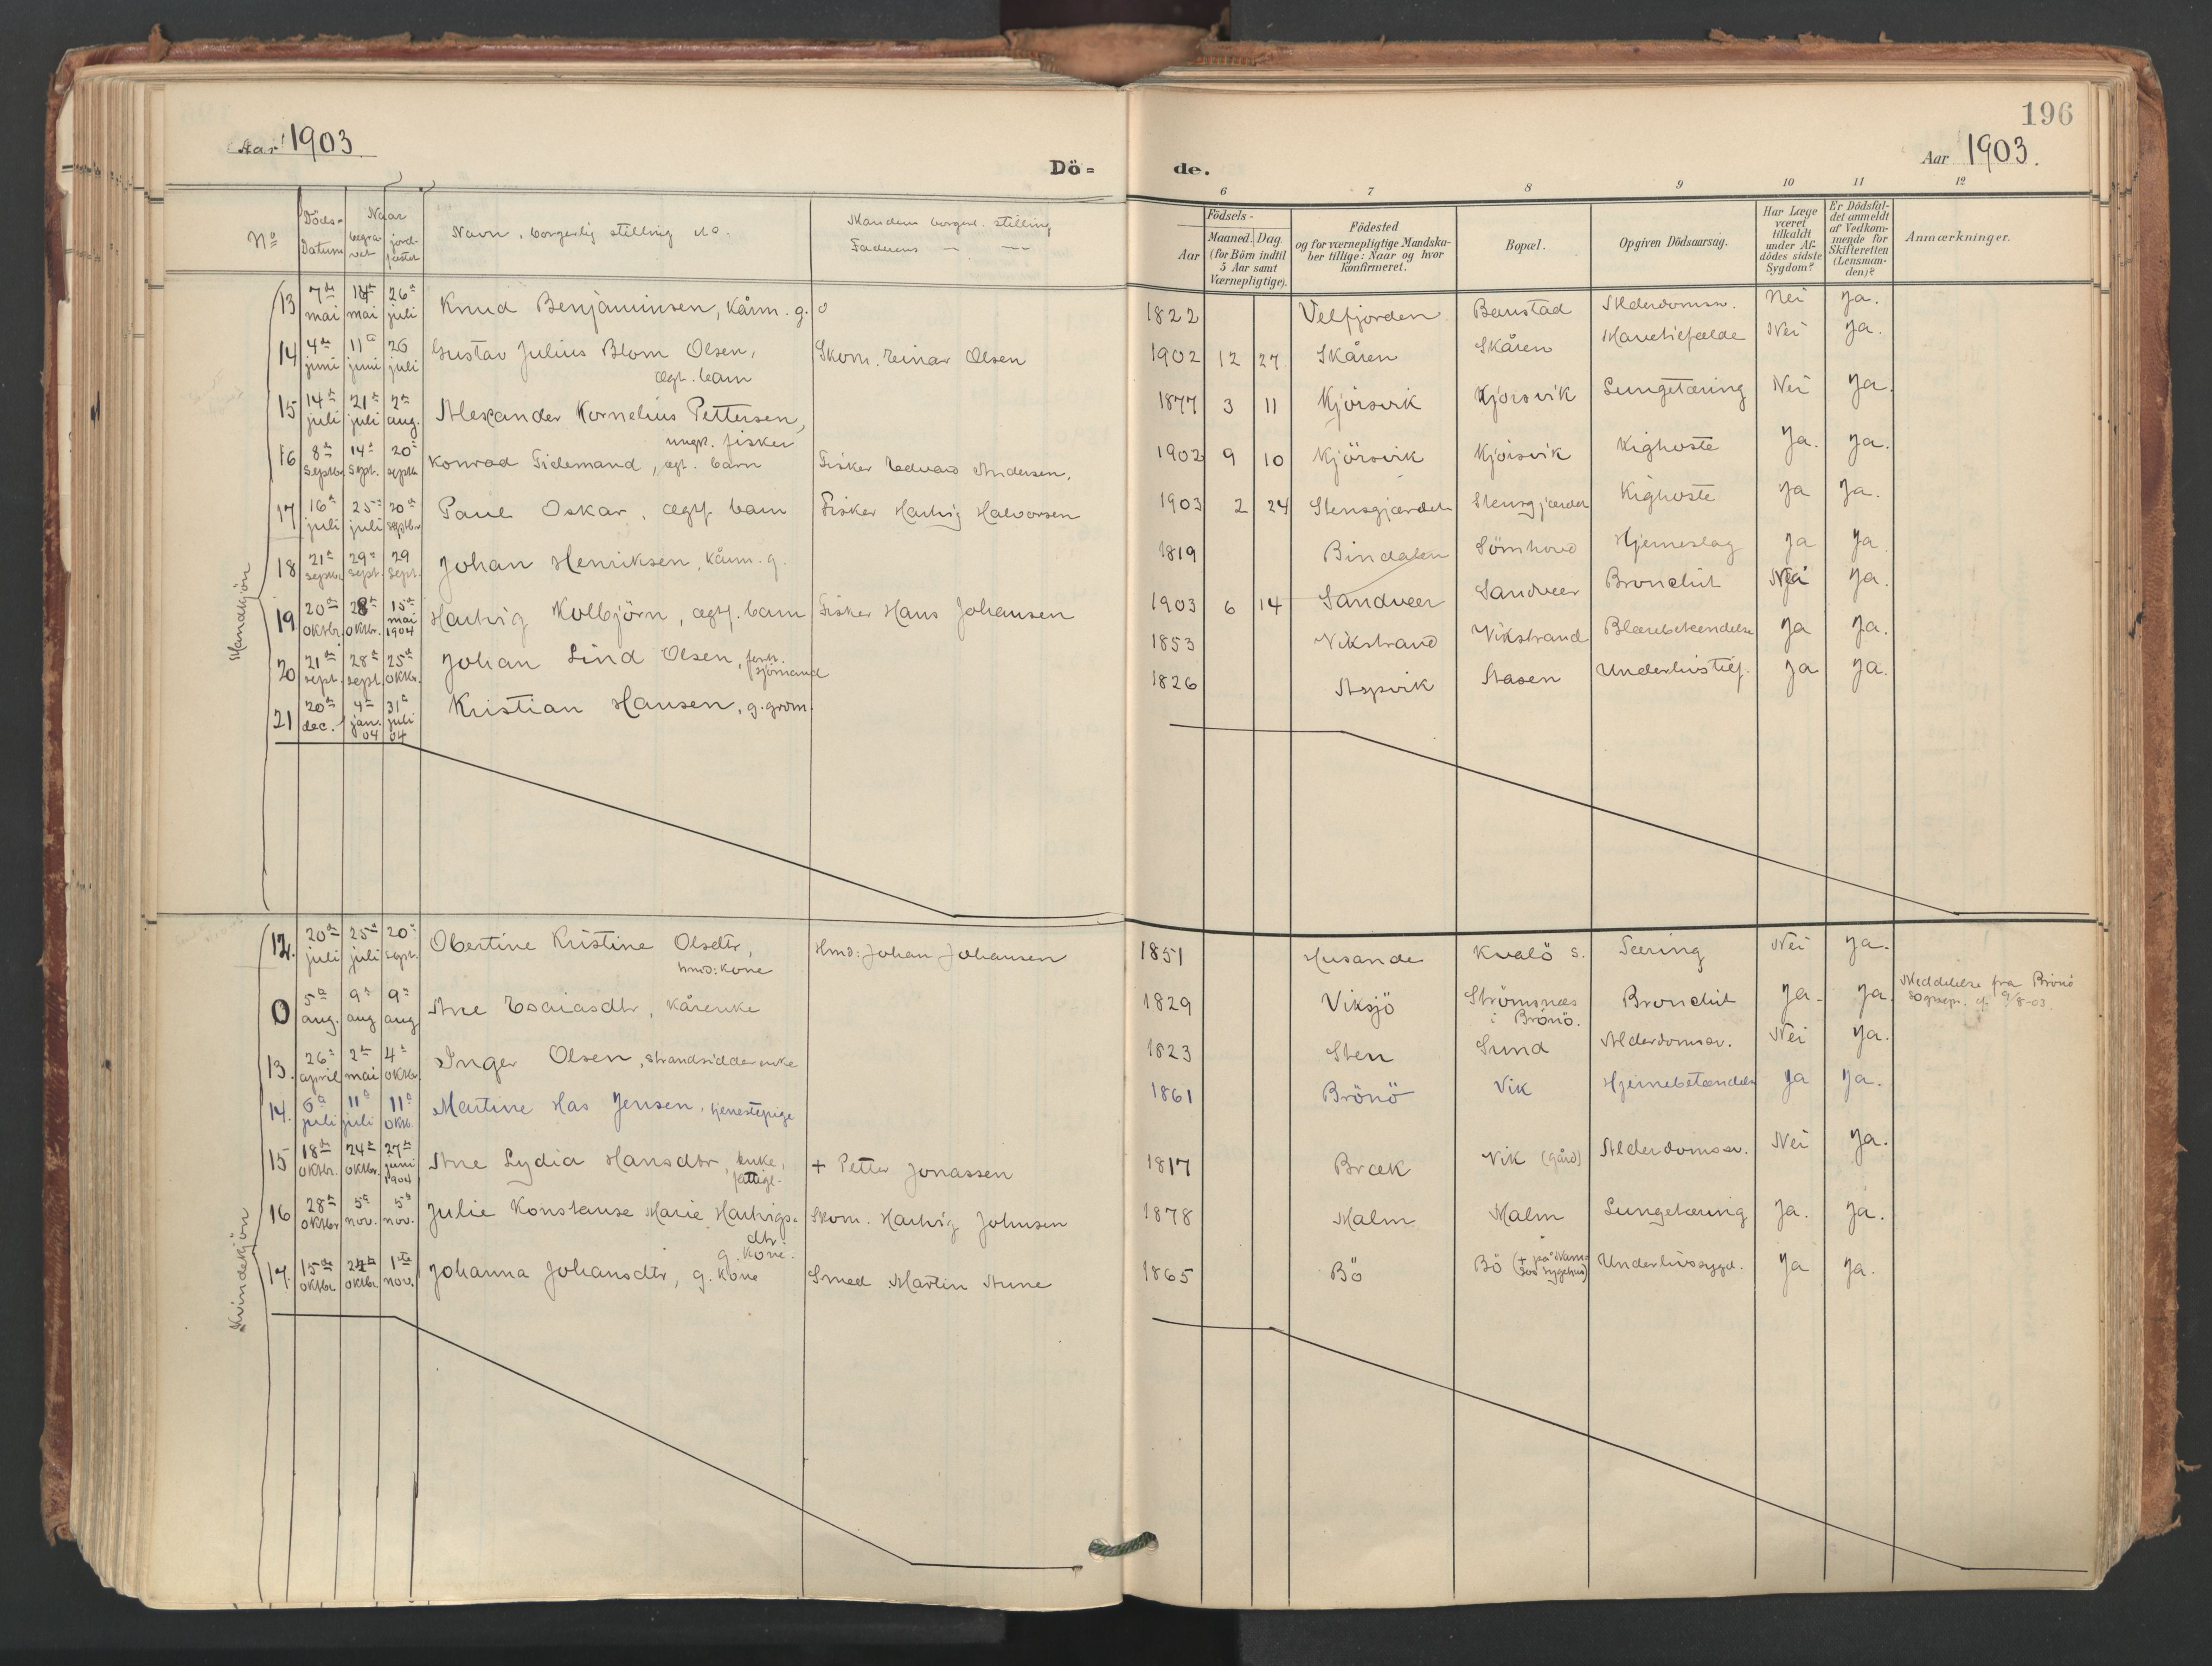 196
Aar 1903.
Dö- de.
Aar 1903.
6 7 8 9 10 11 12
No Döds-Datum Naar begravet jordfæstet Navn, borgerlig stilling Mandens borgerl. stilling Faderens — —
Födsels- Aar Maaned. Dag. (for Börn indtil 5 Aar samt Værnepligtige). Födested og for værnepligtige Mandskaber tillige: Naar og hvor konfirmeret. Bopæl. Opgiven Dödsaarsag. Har Læge været tilkaldt under Afdödes sidste Sygdom? Er Dödsfaldet anmeldt af Vedkommende for Skifteretten (Lensmanden)? Anmærkninger.
Mandkjön
13 7de mai 14de mai 26de juli Knud Benjaminsen, kårm. g. 1822 Velfjorden Baustad Alderdomssv. Nei Ja.
14 4de juni 11te juni 26 juli Gustav Julius Blom Olsen, ægt. barn Skom. Einar Olsen 1902 12 27 Skåren Skåren Mavetilfælde Nei Ja.
15 14de juli 21de juli 2de aug. Alexander Kornelius Pettersen, ungk. fisker 1877 3 11 Kjörsvik Kjörsvik Lungetæring Nei Ja.
16 8de septbr. 14de sept. 20de septb. Konrad Tidemand, ægt. barn Fisker Edvard Andersen. 1902 9 10 Kjörsvik Kjörsvik Kighoste Ja. Ja.
17 16de juli 25de juli 20de septbr. Paul Oskar, ægtf. barn Fisker Hartvig Halvorsen 1903 2 24 Stensgjærdet Stensgjærdet Kighoste Ja Ja.
18 21de septbr. 29de sept. 29 sept. Johan Henriksen, kårm. g. 1819 Bindalen Sömhovd Hjerneslag Ja Ja.
19 20de oktbr. 28de oktbr. 15de mai 1904 Hartvig Kolbjörn, ægtf. barn Fisker Hans Johansen 1903 6 14 Sandvær Sandvær Bronchit Nei Ja.
20 21de sept. 28de sept. 25de oktbr. Johan Lind Olsen, sjömand 1853 Vikstrand Vikstrand Blærebetændelse Ja Ja.
21 20de dec. 4de jan. 04 31te juli 04 Kristian Hansen, g. 1826 Aspvik Aasen Underlivstilf. Ja Ja.
Kvindekjön
12. 20de juli 25de juli 20de sept. Obertine Kristine Olsdtr, hmd: kone Hmd: Johan Johansen 1851 Husande Kvalö s. Tæring Nei Ja.
0 5te aug. 9de aug 9de aug Ane Esaiasdtr, kårenke 1829 Viksjö Strömsnæs i Brönö. Bronchit Ja. Ja Meddelelse fra Brönö sognepr. af 9/8-03.
13. 26de april 2de mai 4de oktbr. Inger Olsen, strandsidderenke 1823 Sten Sund Alderdomssv. Nei Ja.
14. 6te juli 11te juli 11te oktb. Martine Has Jensen, tjenestepige 1861 Brönö Vik Hjernebetændelse Ja Ja.
15 18de oktbr. 24de oktbr. 27de juni 1904 Ane Lydia Hansdtr, enke, fattigl. + Petter Jonassen 1817 Bræk Vik (gård) Alderdomssv. Nei Ja.
16 28de oktbr 5te nov. 5te nov. Julie Konstanse Marie Hartvigsdtr. g. kone. Skom. Hartvig Johnsen 1878 Malm Malm Lungetæring Ja. Ja.
17. 15de oktbr 24de oktbr. 1ste nov. Johanna Johansdtr, g. kone Smed Martin Aune 1865 Bö Bö (+ på Namsos sygehus) Underlivssygd. Ja Ja.